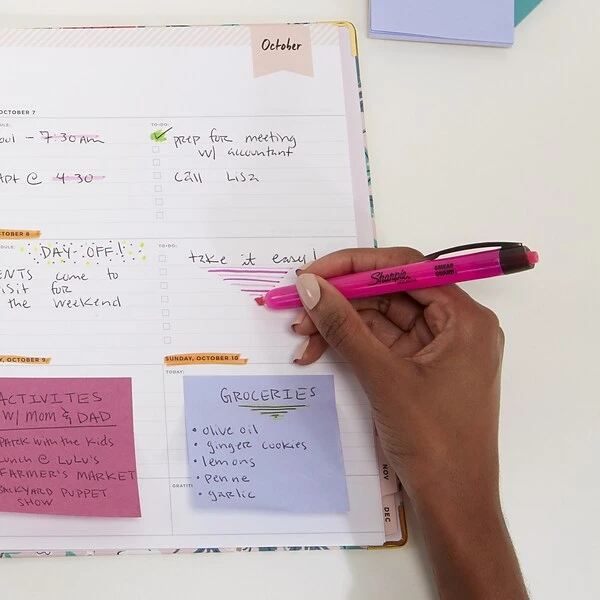 October
OCTOBER 7
TO-DO:
- 7:30 am
prep for meeting
w/ accountant
@ 4:30
Call Lisa
OCTOBER 8
TO-DO:
DAY-OFF!
take it easy!
come to
for
the weekend
Sharpie
SMEAR GUARD
OCTOBER 9
SUNDAY, OCTOBER 10
TODAY:
ACTIVITES
W/ MOM & DAD
PARK WITH THE KIDS
LUNCH @ LULU'S
FARMER'S MARKET
BACKYARD PUPPET
SHOW
GROCERIES
• olive oil
• ginger cookies
• lemons
• penne
• garlic
NOV
DEC